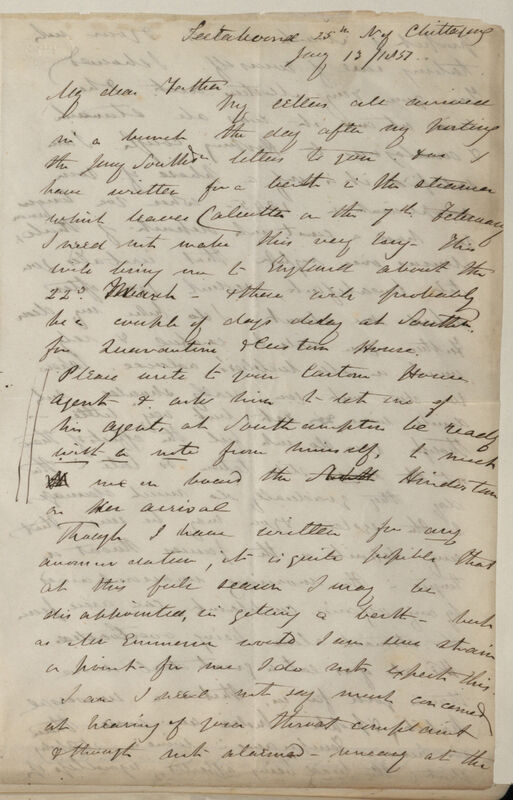 Seetakoond 25th N of Chittagong
Jany 13 / 1851
My dear Father
My letters all arrived
in a bunch the day after my posting
the Jany letters to you & as I
have written for a berth in the steamer
which leaves Calcutta on the 7th February
I need not make this very long - This
will bring me to England about the
22d March - & there will probably
be a couple of days delay at Southn
for Quarantine & Custom House.
Please write to your Custom House
Agent & ask him to let one of
his agents at Southampton be ready
with a note from himself, to meet
me on board the Hindostan
on her arrival
Though I have written for any
accommodation, it is quite possible that
at this full season I may be
disappointed, in getting a berth - but
as Mr would I am sure strain
a point for me I do not expect this.
I am I need not say much concerned
at hearing of your throat complaint
& though not alarmed - uneasy at the